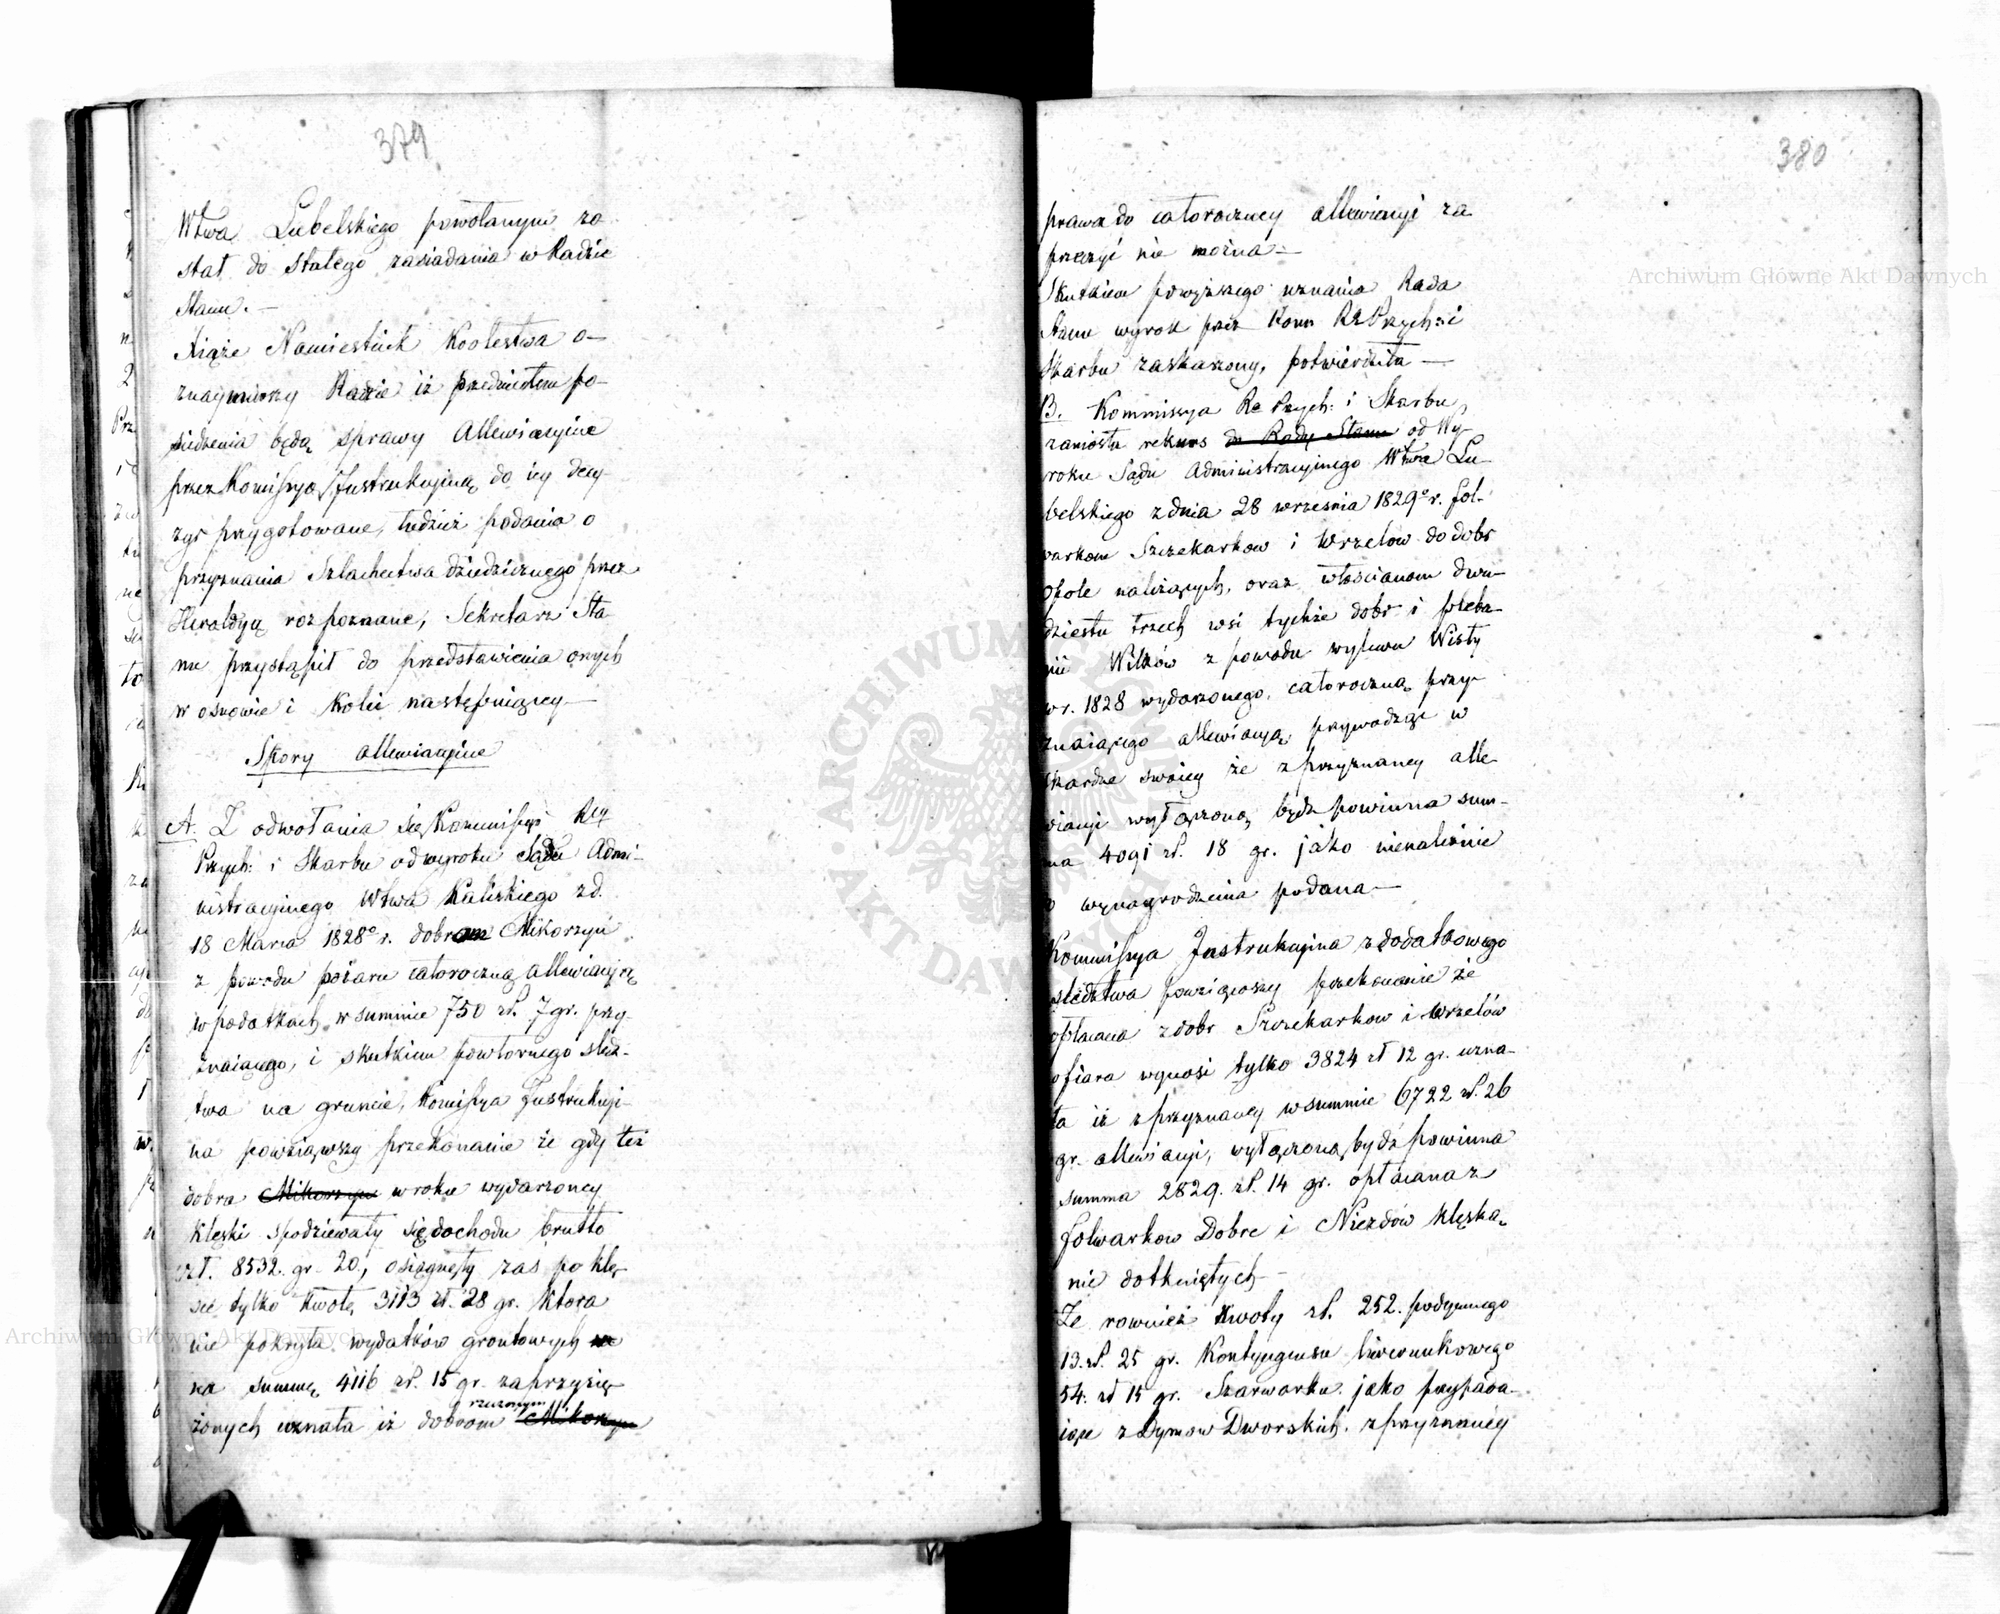 379
Wtwa Lubelskiego powołanym zo
stał do stałego zasiadania w Radzie
Stanu. —
Xiąże Namiestnik Krolestwa o—
znaymiwszy Radzie iż przedmiotem po—
siedzenia będą sprawy Allewiacyine
przez Komissyą Instrukcyiną do iey decy
zyi przygotowane, tudzież podania o
przyznania Szlachectwa dziedzicznego przez
Heroldyą rozpoznane, Sekretarz Sta
nu przystąpił do przedstawienia onych
w osnowie i kolei następuiącey —
Spory allewiacyine
A. Z odwołania się Kommissyi Rey
Przych: i Skarbu od wyroku Sądu Admi-
nistracyinego Wtwa Kaliskiego z d.
18 Marca 1828º r. dobrom Mikorzyn
z powodu pożaru całoroczną allewiacyią
w podatkach w summie 750 zł. 7 gr. przy-
znaiącego, i skutkiem powtornego śledz-
twa na gruncie, Komissya Instrukcyi-
na powziąwszy przekonanie że gdy też
dobra Mikorzyn w roku wydarzoney
klęski spodziewały się dochodu brutto
zł. 8532. gr. 20, osiągnęły zaś po klę-
sce tylko kwotę 3113 zł. 28 gr. która
nie pokryła wydatków gruntowych na
na summę 4116 zł. 15 gr. zaprzysię-
rzeczonym
żonych uznała iż dobrom Mikorzyn
380
prawa do całoroczney allewiacyi za
przeczyć nie można —
Skutkiem powyższego uznania Rada
Stanu wyrok przez Komm R Przych: i
Skarbu zaskarzony, potwierdziła —
B. Kommissya Rz Przych: i Skarbu
zaniosła rekurs do Rady Stanu od Wy-
roku Sądu Administracyinego Wtwa Lu-
belskiego z dnia 28 września 1829º r. fol-
warkom Szczekarkow i Wrzelow do dobr
Opole należących, oraz włościanom dwu-
dziestu trzech wsi tychże dobr i pleba-
nii Wilków z powodu wylewu Wisły
w r. 1828 wydarzonego, całoroczną przy-
znaiącego allewiacyą, przywodząc w
skardze swoiey że z przyznaney alle
wiacyi wyłączoną bydź powinna sum-
ma 4091 zł. 18 gr. jako nienależnie
do wynagrodzenia podana —
Kommissya Instrukcyina z dodatkowego
śledztwa powziąwszy przekonanie że
opłacana z dobr Szczekarkow i Wrzelów
ofiara wynosi tylko 3824 zł 12 gr. uzna-
ła iż z przyznaney w summie 6722 zł. 26
gr. allewiacyi, wyłączoną bydź powinna
summa 2829. zł. 14 gr. opłacana z
folwarkow Dobre i Niezdów klęską
nie dotkniętych —
Ze rownież kwoty zł. 252. podymnego
13. zł. 25 gr. Kontyngensu liwerunkowego
54. zł 15 gr. Szarwarku. jako przypada-
iące z Dymow Dworskich. z przyznaney
Archiwum Główne Akt Dawnych
Archiwum Główne Akt Dawnych
ARCHIWUM GŁÓWNE AKT DAWNYCH